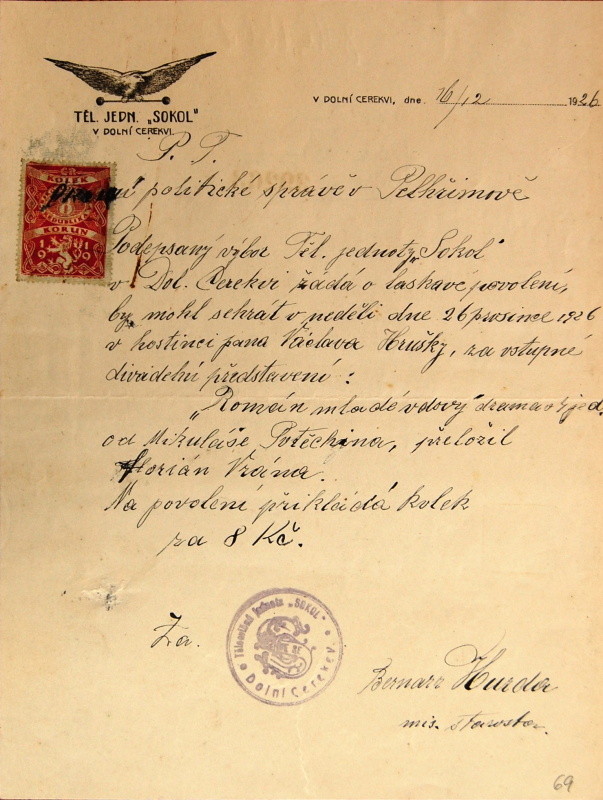 TĚL. JEDN. „SOKOL"
V DOLNÍ CEREKVI.
V DOLNÍ CEREKVI, dne. 16/12 1926
P. T.
politické správě v Pelhřimově
KOLEK
REPUBLIKA
KORUN
1919
Podepsaný výbor Těl. jednoty „Sokol"
v Dol. Cerekvi žádá o laskavé povolení,
by mohl sehrát v neděli dne 26 prosince 1926
v hostinci pana Václava Hrušky, za vstupné
divadelní představení:
„Román mladé vdovy" drama o jed.
od Mikuláše Potěchina, přeložil
Florián Vrána.
Na povolení přikládá kolek
za 8 Kč.
Za.
Tělocvičná jednota „SOKOL"
Dolní Cerekev
Bernarr Hurda
mís. starosta.
69